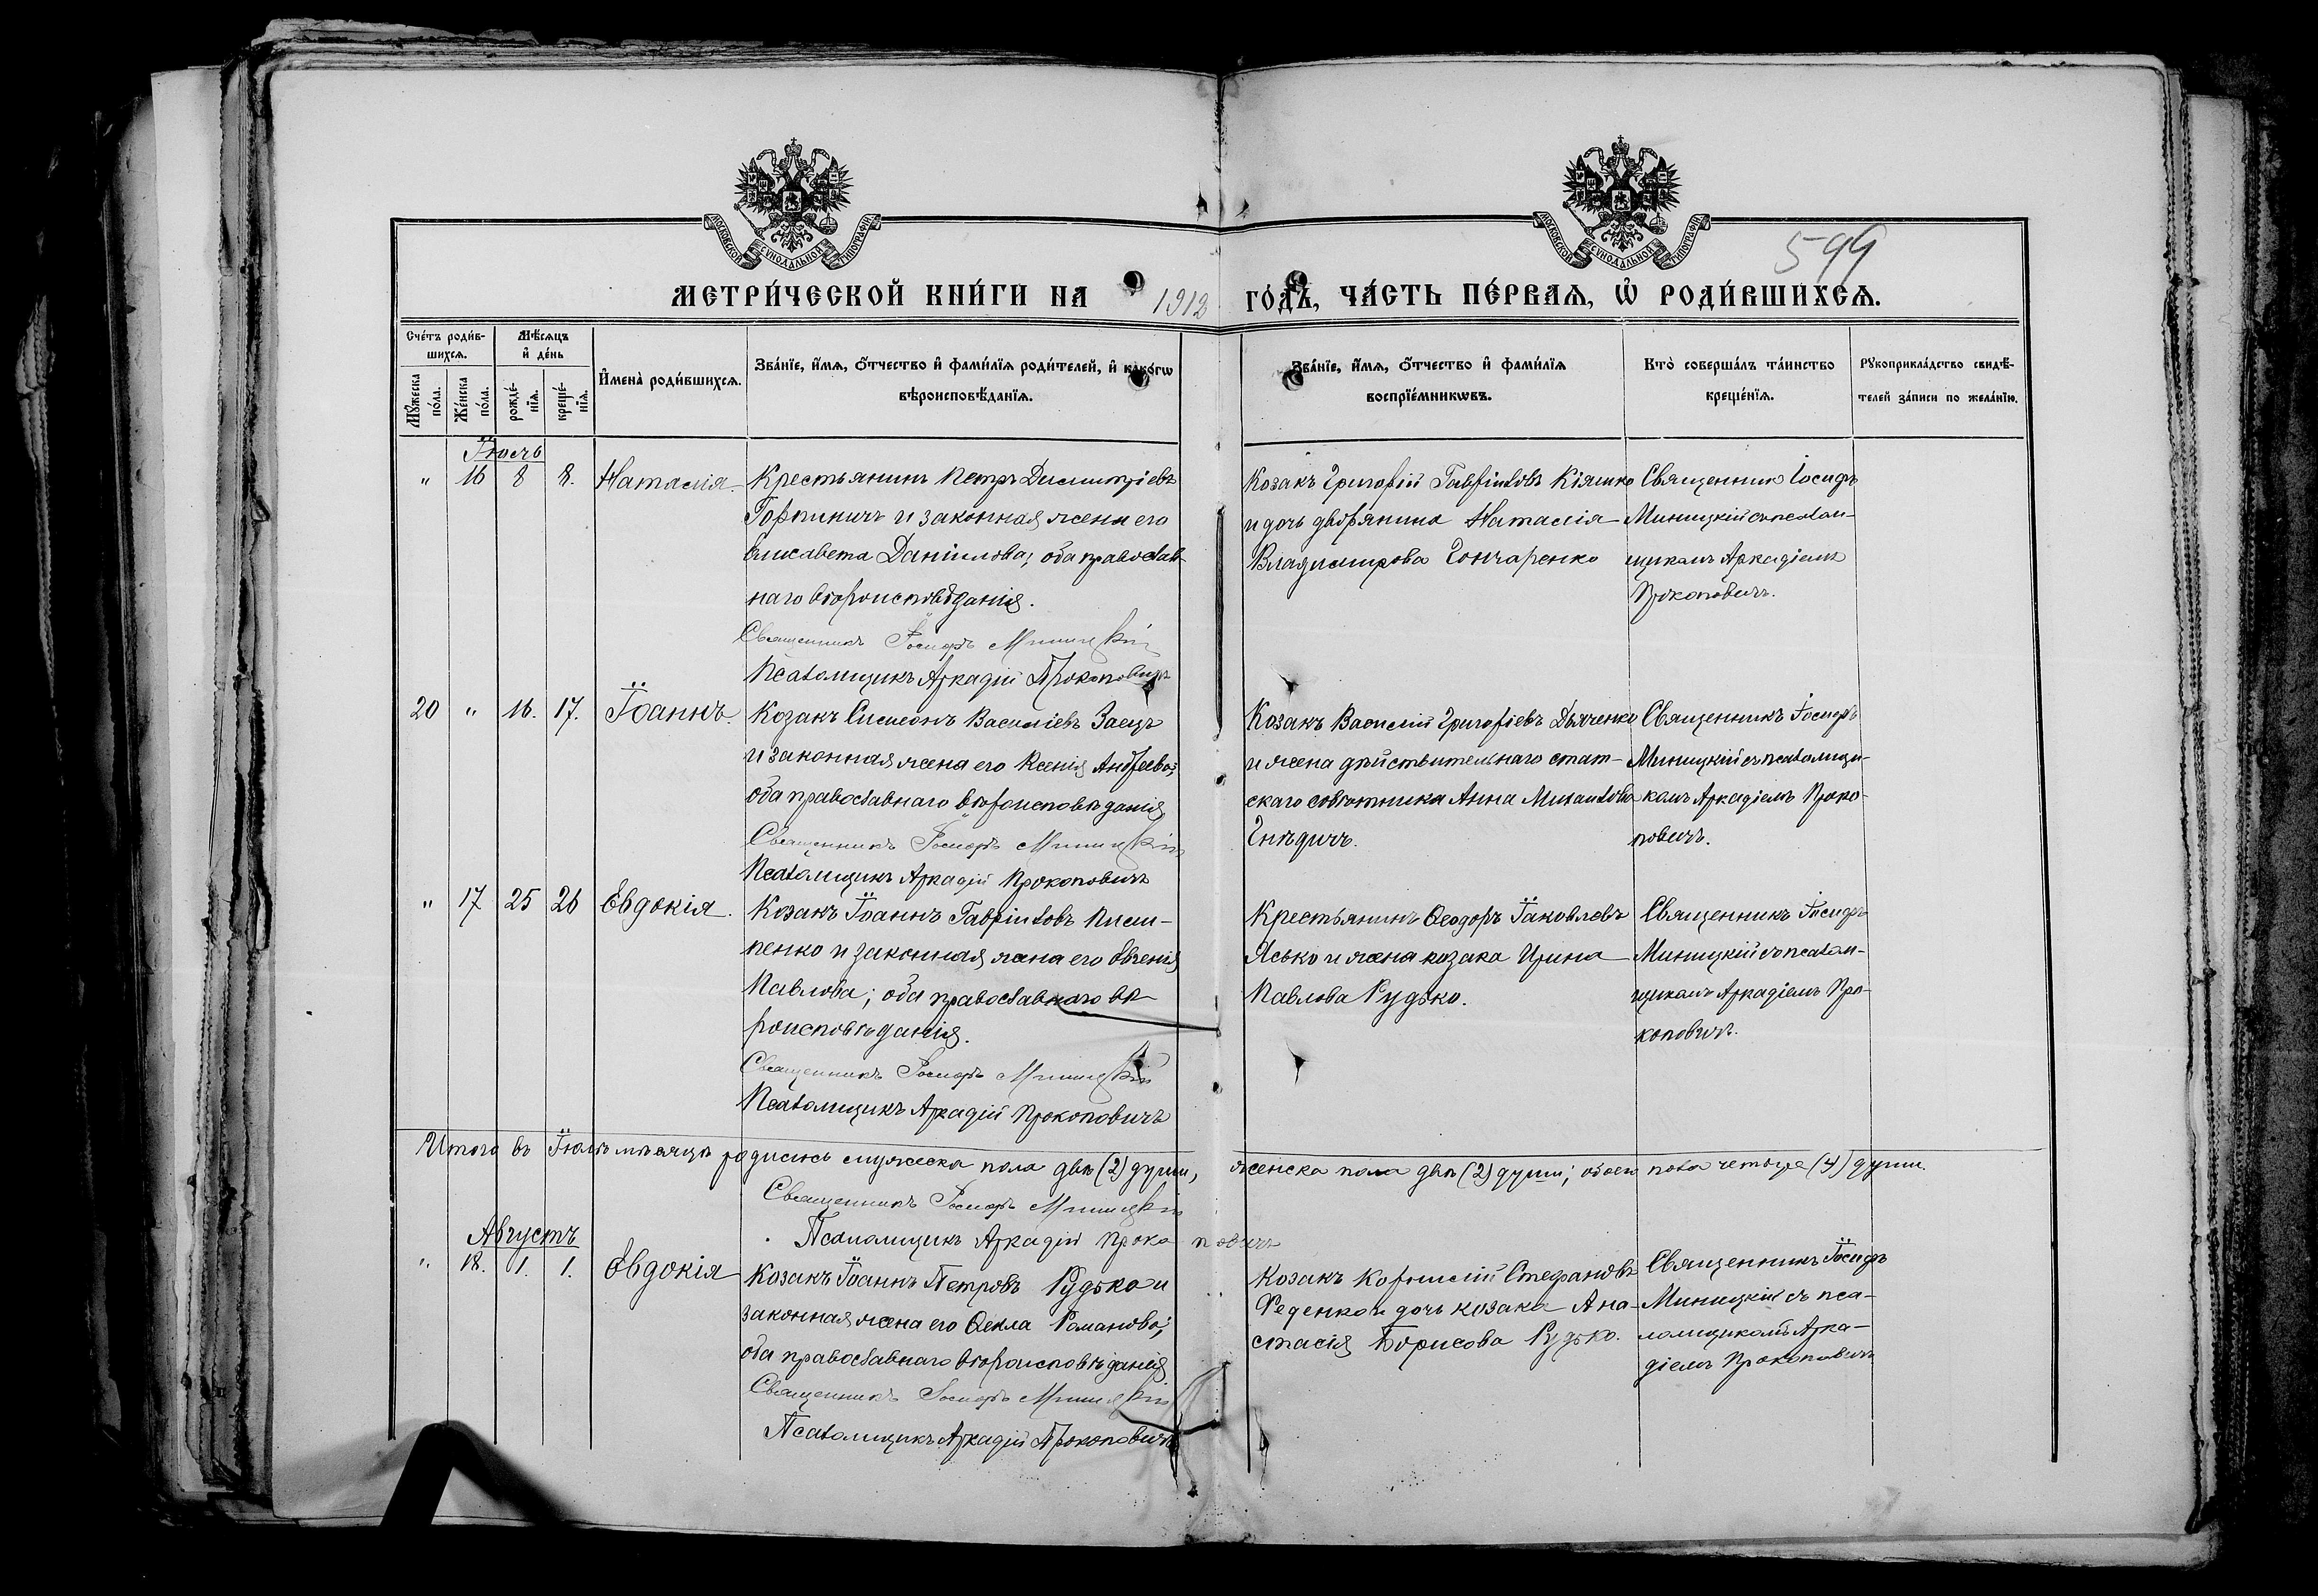 МОСКОВСКОЙ СѴНОДАЛЬНОЙ ТИПОГРАФІИ
МОСКОВСКОЙ СѴНОДАЛЬНОЙ ТИПОГРАФІИ
599
МЕТРИ́ЧЕСКОЙ КНИ́ГИ НА 1912 ГО́ДЪ, ЧА́СТЬ ПЕ́РВАЯ, Ѡ РОДИ́ВШИХСЯ.
Сче́тъ роди́в-
шихся.
Мѣ́сяцъ
и҆ де́нь
Мꙋ́жеска
по́ла.
Же́нска
по́ла.
рожде́-
нїя.
креще́-
нїя.
И҆мена̀ роди́вшихся.
Зва́нїе, и҆́мя, ѻ҆́тчество и҆ фами́лїя роди́телей, и҆ како́гѡ
вѣроисповѣ́данїя.
Зва́нїе, и҆́мя, ѻ҆́тчество и҆ фами́лїя
воспрїе́мникѡвъ.
Кто̀ соверша́лъ та́инство
креще́нїя.
Рꙋкоприкла́дство свидѣ́-
телей за́писи по жела́нїю.
Іюль
" 16 8 8. Наталія.
Крестьянинъ Петръ Димитріевъ
Горпиничъ и законная жена его
Елисавета Даніилова; оба православ-
наго вѣроисповѣданія.
Священникъ Іосифъ Миницкій
Псаломщикъ Аркадій Прокоповичъ
Козакъ Григорій Гавріиловъ Кіяшко
и дочь дворянина Наталія
Владимирова Гончаренко
Священникъ Іосифъ
Миницкій съ псалом-
щикомъ Аркадіемъ
Прокоповичъ.
20 " 16. 17. Іоаннъ.
Козакъ Симеонъ Василіевъ Заецъ
и законная жена его Ксенія Андреева;
оба православнаго вѣроисповѣданія
Священникъ Іосифъ Миницкій
Псаломщикъ Аркадій Прокоповичъ
Козакъ Василій Григоріевъ Дьяченко
и жена дѣйствительнаго стат-
скаго совѣтника Анна Михаилова
Гнѣдичъ.
Священникъ Іосифъ
Миницкій съ псаломщи-
комъ Аркадіемъ Проко-
повичъ.
" 17 25 26 Евдокія.
Козакъ Іоаннъ Гавріиловъ Пили-
пенко и законная жена его Евгенія
Павлова; оба православнаго вѣ-
роисповѣданія.
Священникъ Іосифъ Миницкій
Псаломщикъ Аркадій Прокоповичъ
Крестьянинъ Ѳеодоръ Іаковлевъ
Ясько и жена козака Ирина
Павлова Рудько.
Священникъ Іосифъ
Миницкій съ псалом-
щикомъ Аркадіемъ Про-
коповичъ.
Итого въ Іюлѣ мѣсяцѣ родилось мужеска пола двѣ (2) души, женска пола двѣ (2) души; обоего пола четыре (4) души.
Священникъ Іосифъ Миницкій
Псаломщикъ Аркадій Прокоповичъ
Августъ
" 18. 1. 1. Евдокія
Козакъ Іоаннъ Петровъ Рудько и
законная жена его Ѳекла Романова;
оба православнаго вѣроисповѣданія
Священникъ Іосифъ Миницкій
Псаломщикъ Аркадій Прокоповичъ
Козакъ Корнилій Стефановъ
Феденко и дочь козака Ана-
стасія Борисова Рудько.
Священникъ Іосифъ
Миницкій съ пса-
ломщикомъ Арка-
діемъ Прокоповичъ